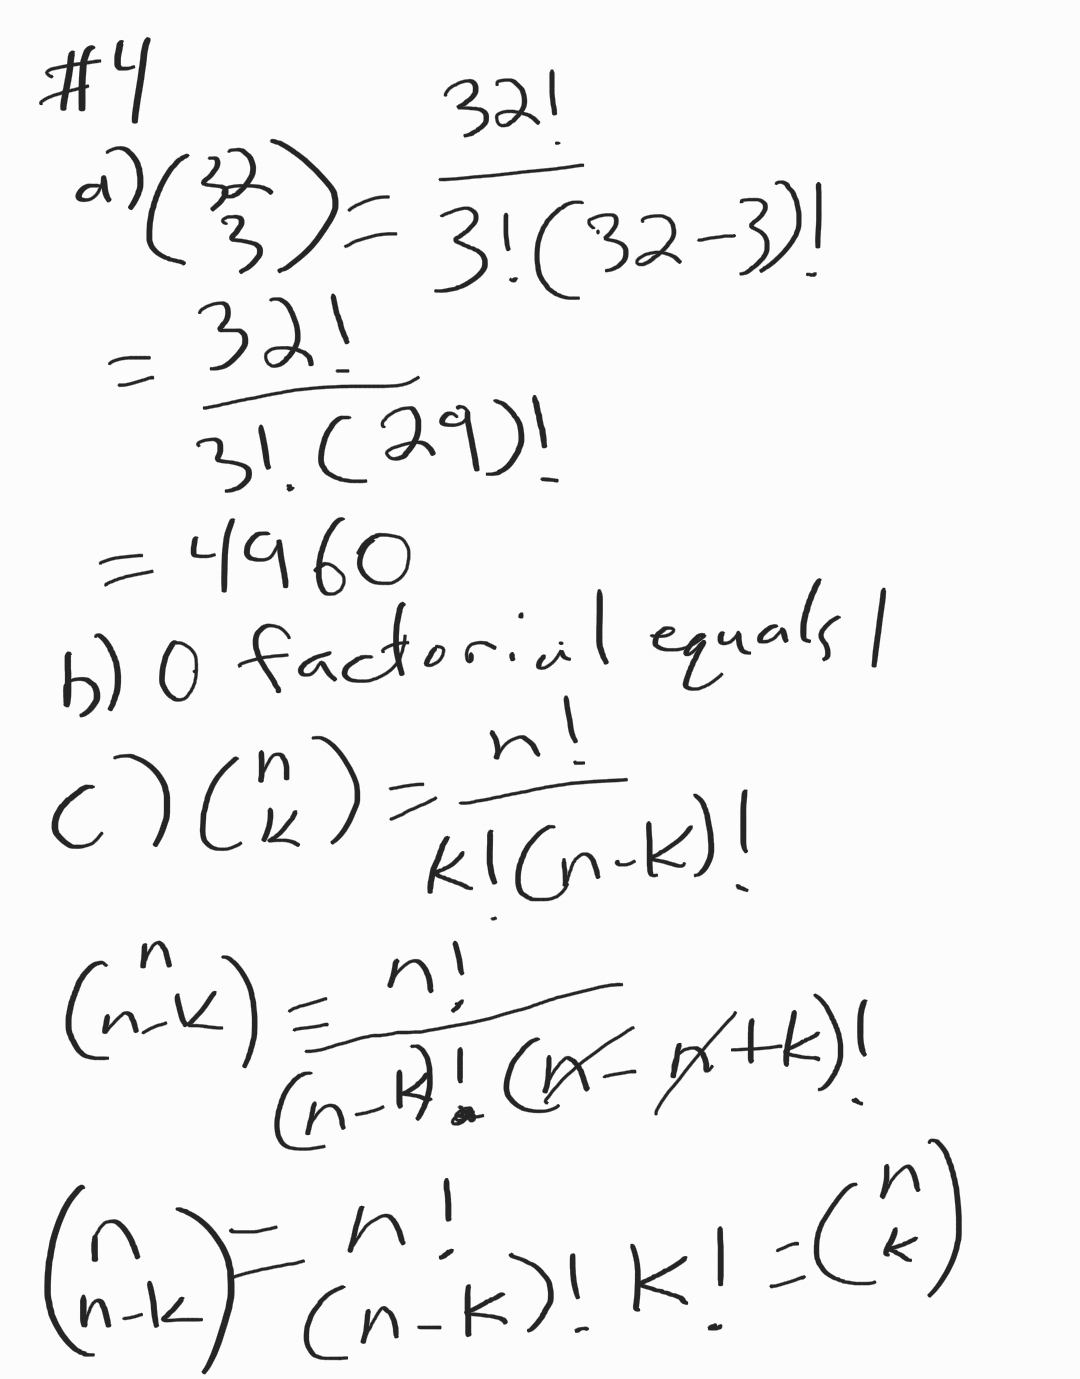 #4
a) (32 3) = 32! / 3!(32-3)!
= 32! / 3!(29)!
= 4960
b) 0 factorial equals 1
c) (n k) = n! / k!(n-k)!
(n n-k) = n! / (n-k)!(n-n+k)!
(n n-k) = n! / (n-k)! k! = (n k)